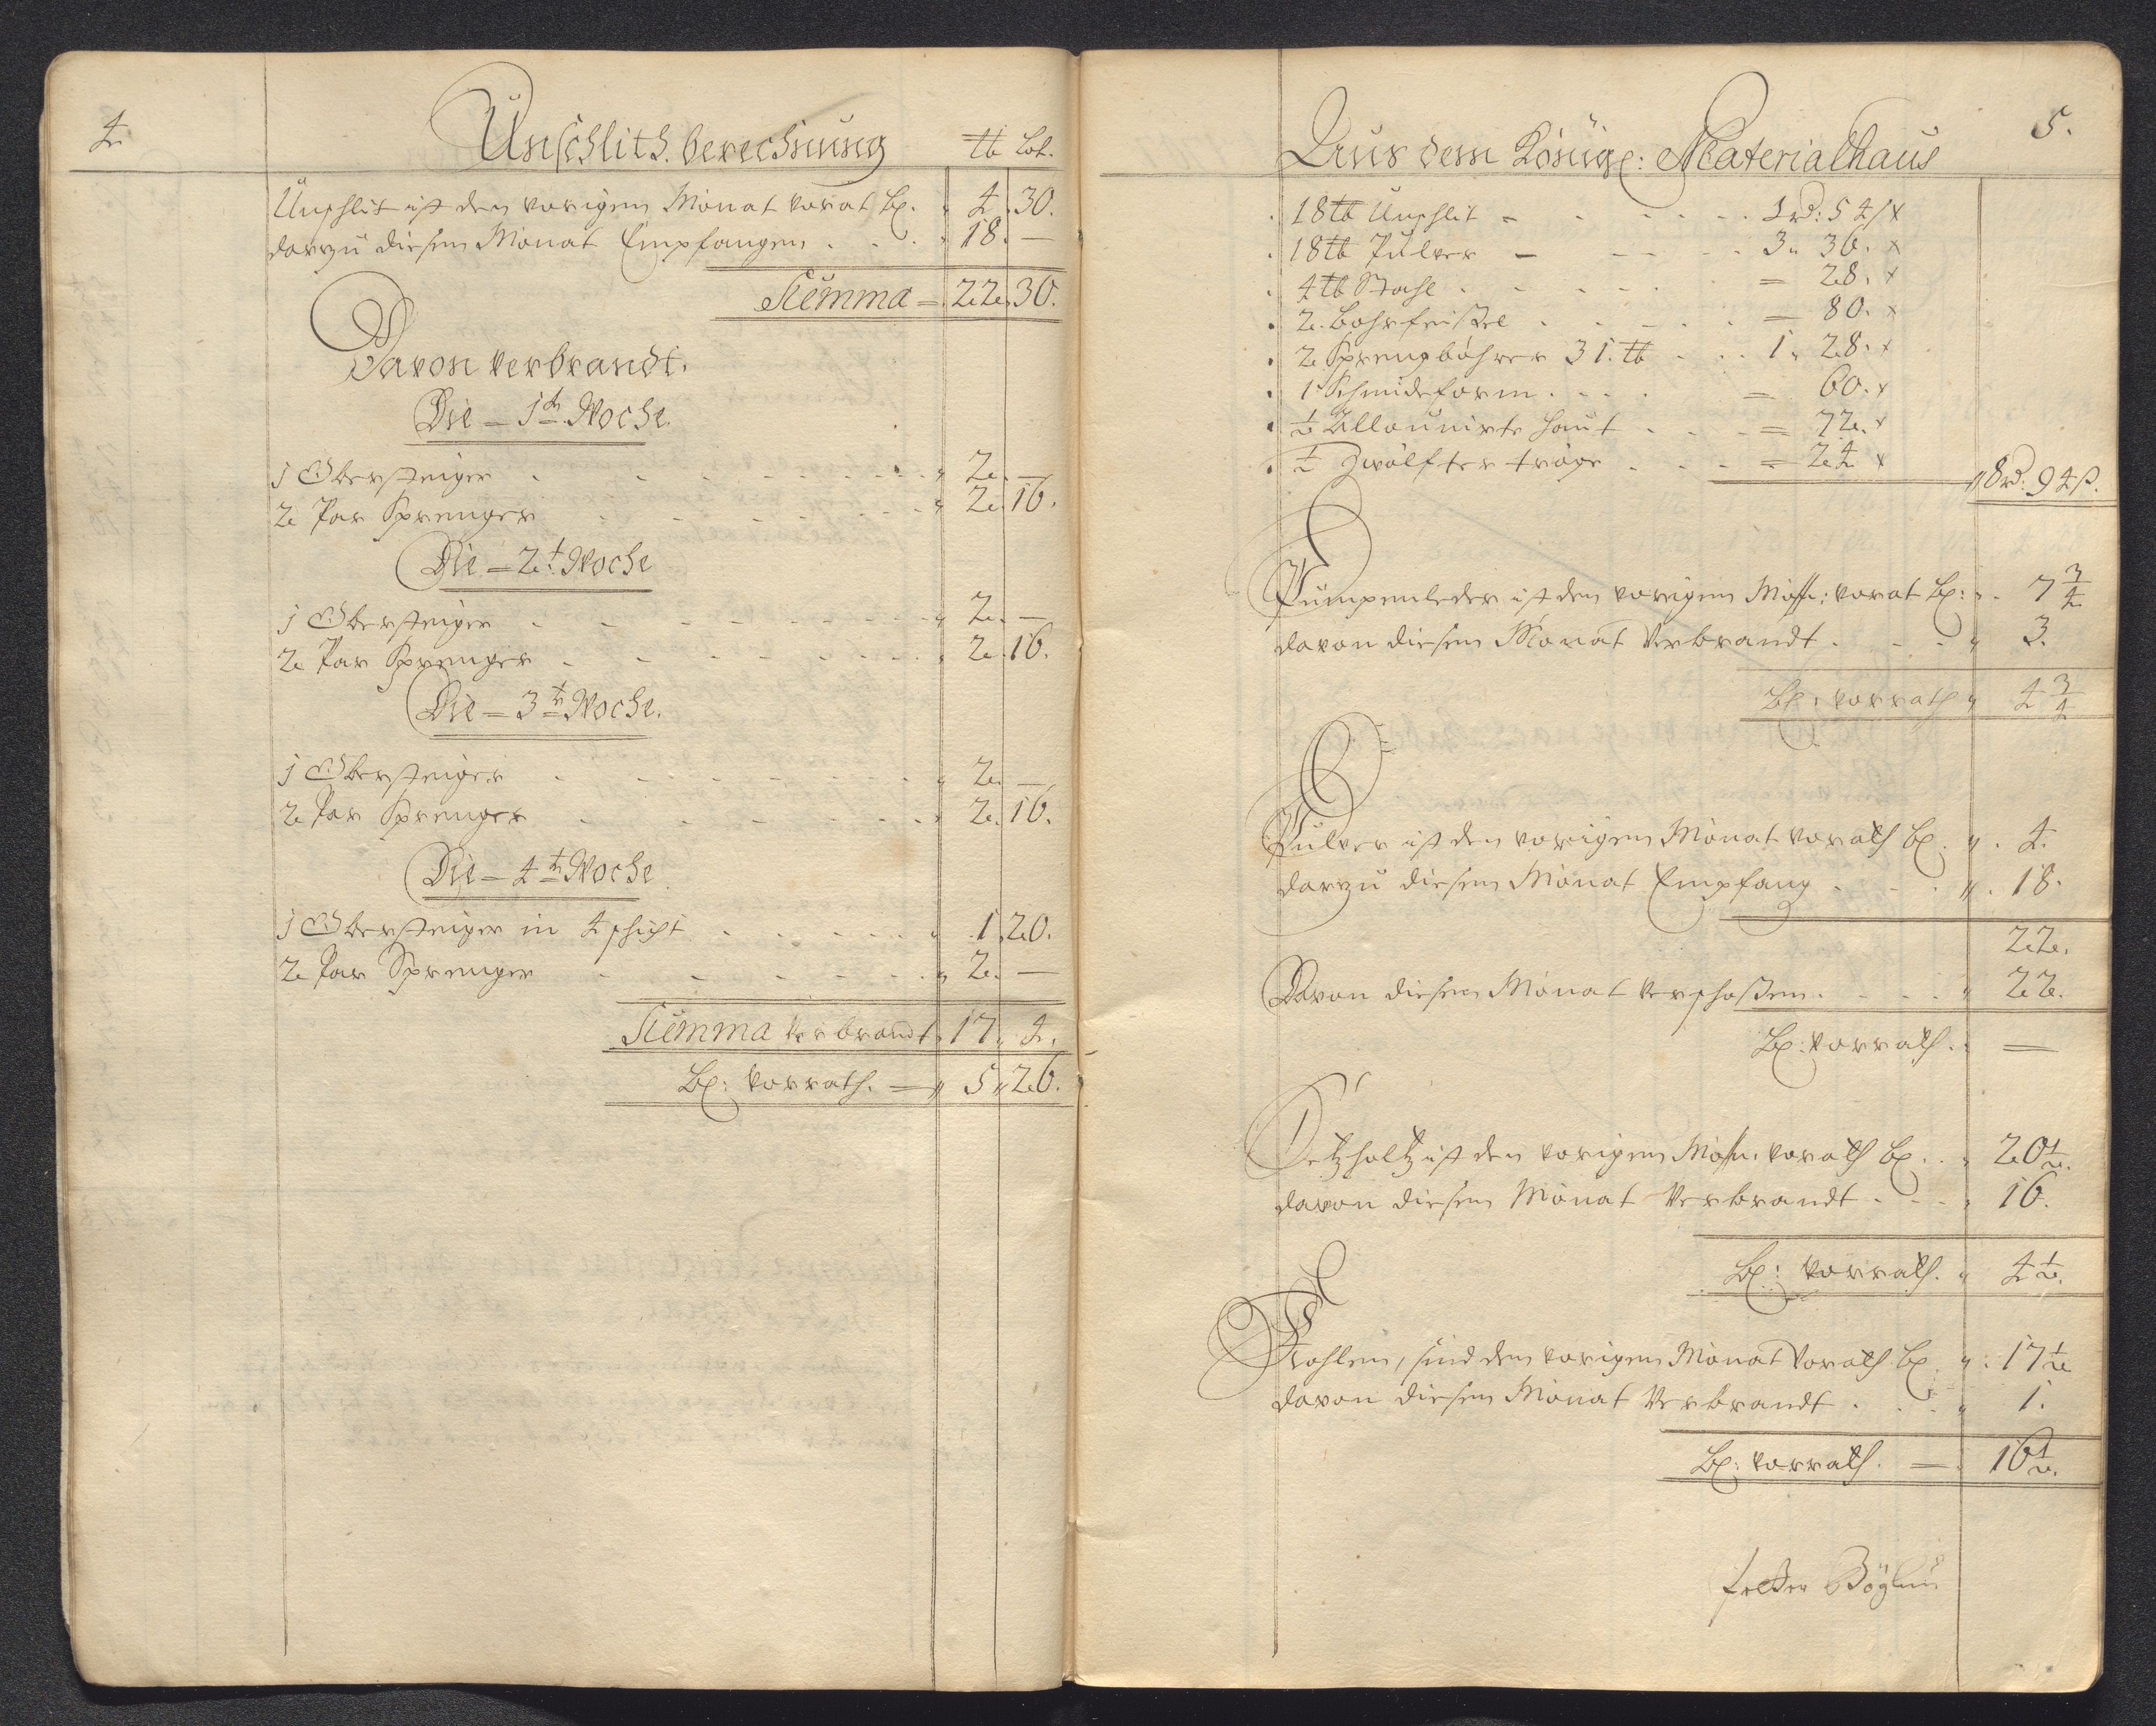 4.
Unschlith. berechnung ℔ Lot.
Unschlit ist den vorigen Monat vorat bl. 4. 30.
darzu diesen Monat Empfangen . . . 18. —
Summa = 22. 30.
Davon verbrandt.
Die = 1te Woche.
1 Obersteiger . . . 2. —
2 Par Sprenger . . . 2. 16.
Die = 2te Woche
1 Obersteiger . . . 2. —
2 Par Sprenger . . . 2. 16.
Die = 3te Woche.
1 Obersteiger . . . 2. —
2 Par Sprenger . . . 2. 16.
Die = 4te Woche
1 Obersteiger in 4 schicht . . . 1. 20.
2 Par Sprenger . . . 2. —
Summa verbrandt 17. 4.
Bl: vorrath. = 5. 26.
5.
Aus dem Königl: Materialhaus
18 ℔ Unschlit - . . . 1 rd: 54 ß x
18 ℔ Pulver - . . . 3 " 36. x
4 ℔ Stahl . . . = 28. x
2. Bohrfeistel . . . = 80. x
2 Sprengböhrer 31. ℔ . . . 1 " 28. x
1 Schmideform . . . = 60. x
½ Allaunirte haut . . . = 72. x
½ Zwölfter tröge . . . = 24 x
8 rd: 94 ß.
Pumpenleder ist den vorigen Mon: vorat bl: 7 3/4
davon diesen Monat Verbrandt . . . 3.
Bl: vorrath 4 3/4
Pulver ist den vorigen Monat vorath bl. 4.
darzu diesen Monat Empfang . . . 18.
22.
Davon diesen Monat verschossen . . . 22.
Bl: vorrath. —
Setzholtz ist den vorigen Mon: vorath bl. 20 ½.
davon diesen Monat Verbrandt . . . 16.
Bl: vorrath. 4 ½.
Kohlen, sind den vorigen Monat Vorath bl. 17 ½
davon diesen Monat Verbrandt . . . 1.
Bl: vorrath. = 16 ½.